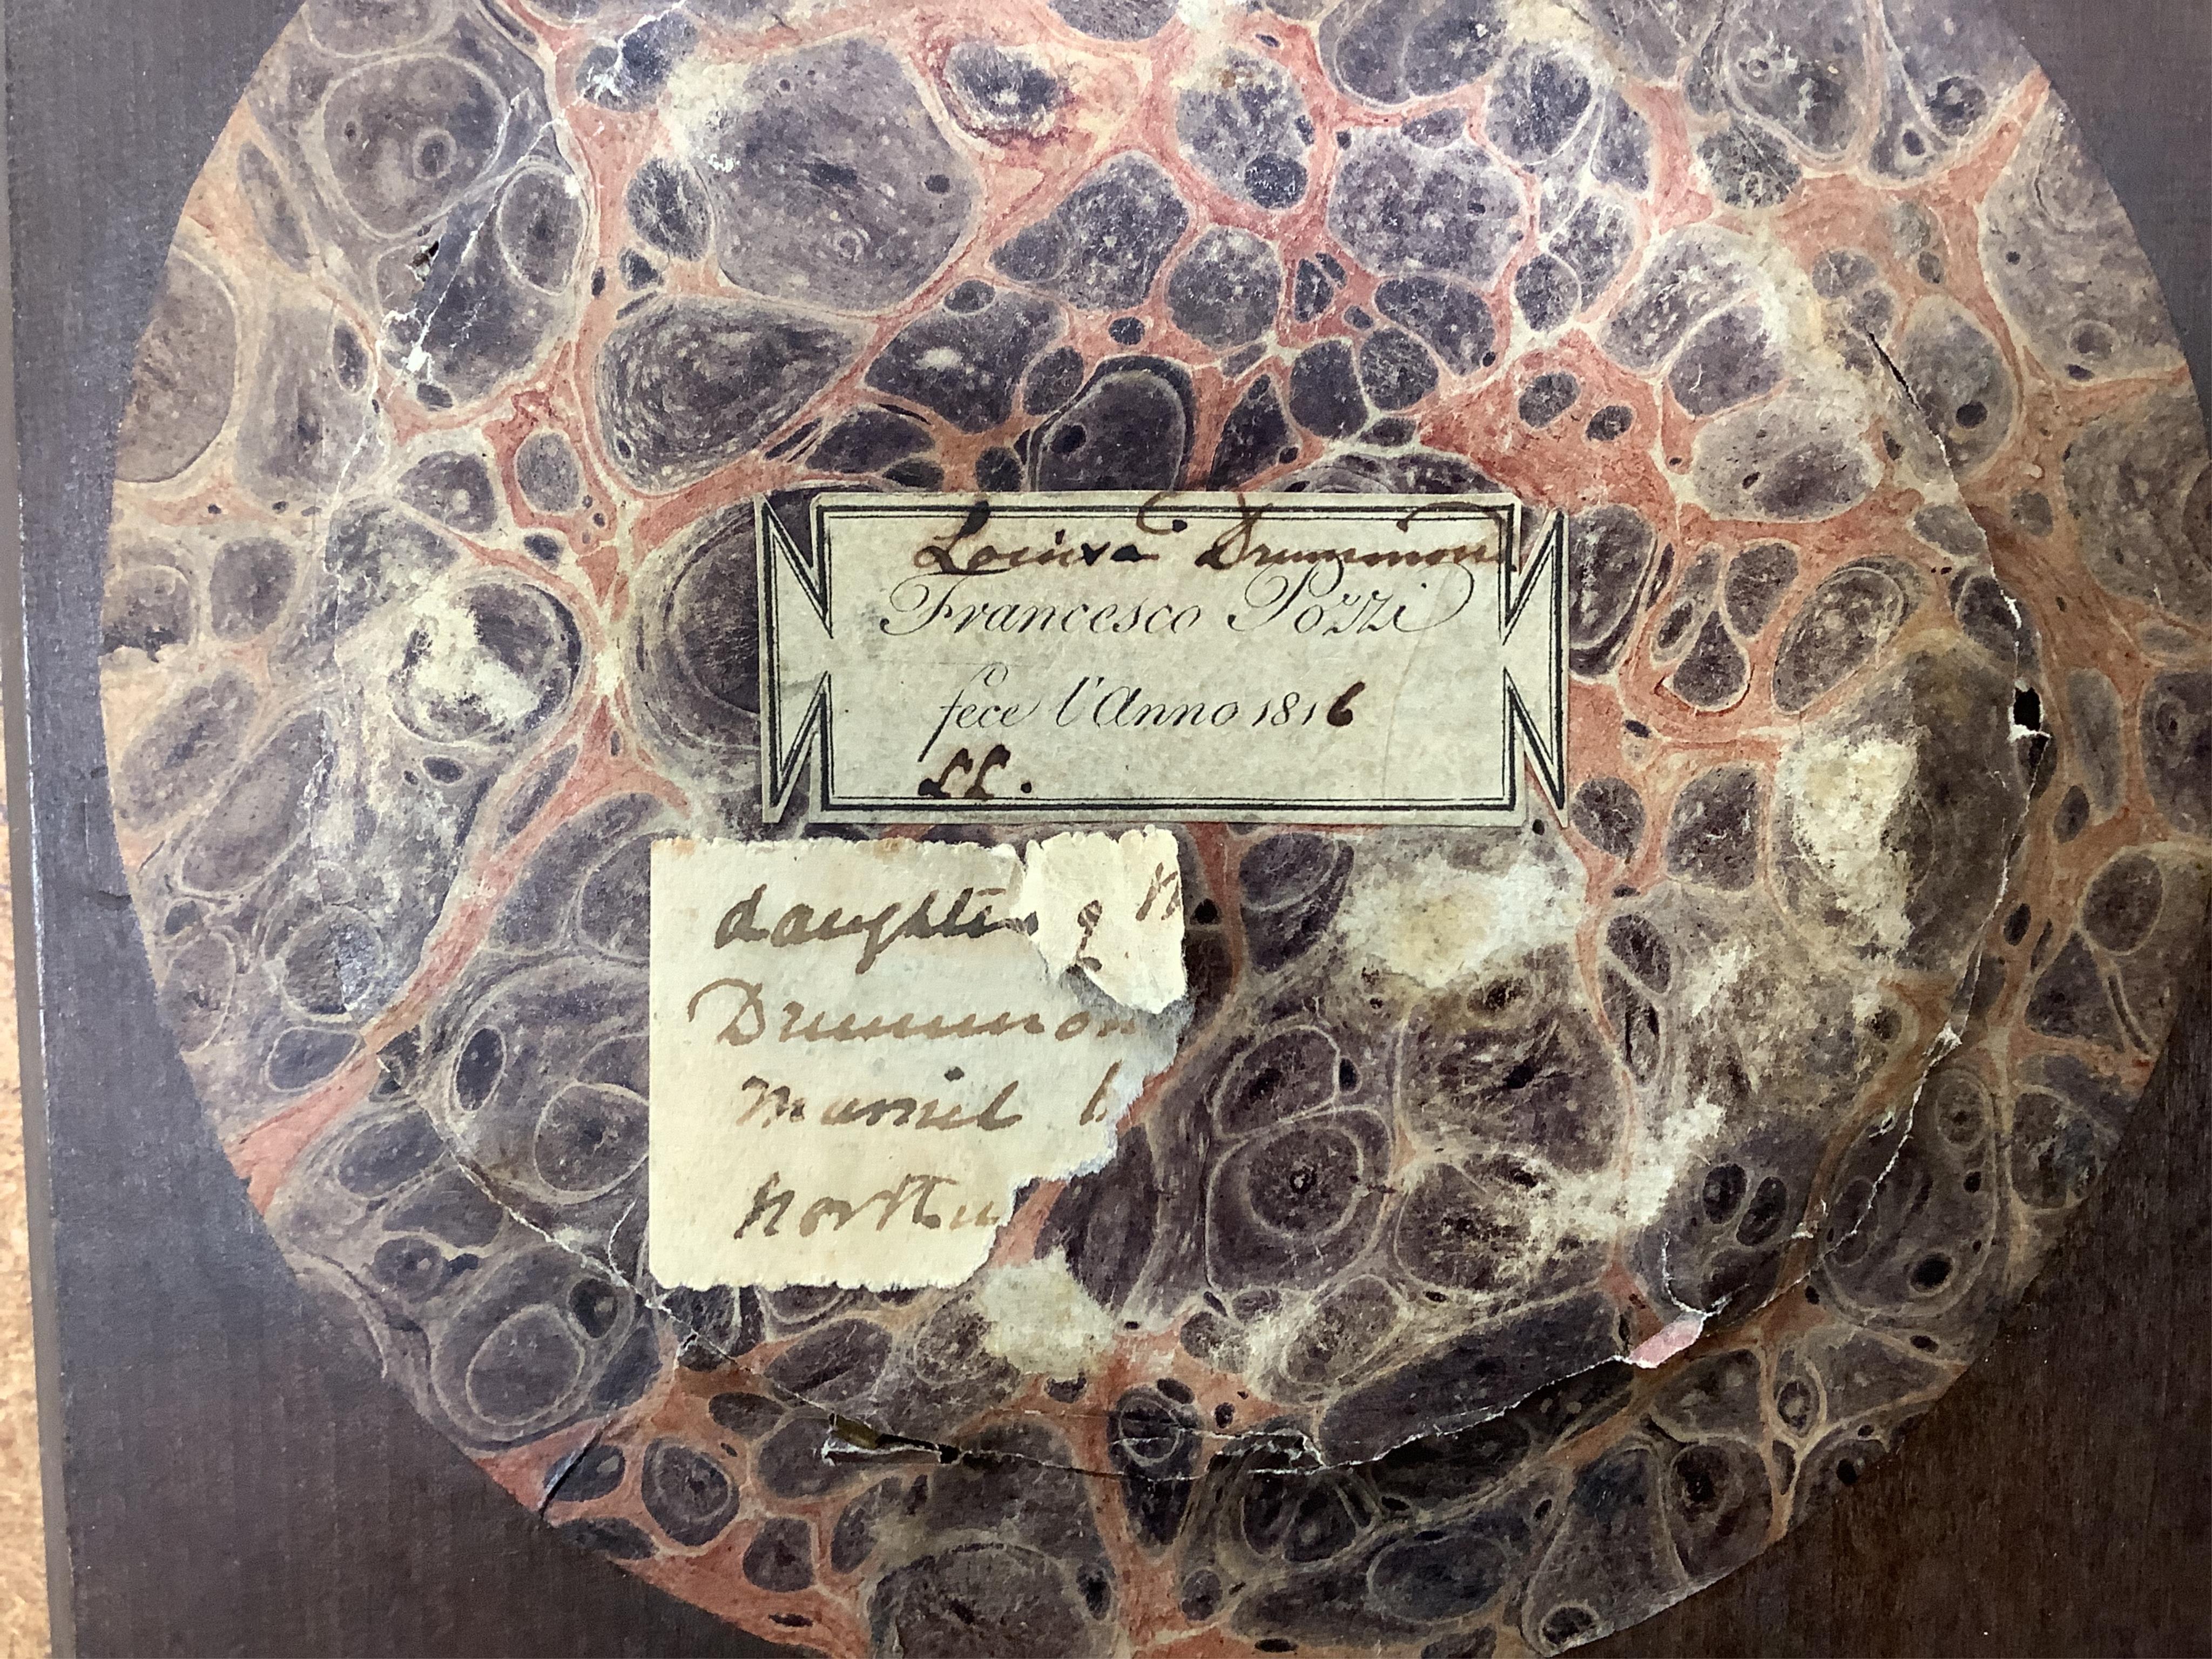 Louisa Drummond
Francesco Pozzi
fece l'Anno 1816
LL.
daughter of
Drummon
Married b
North